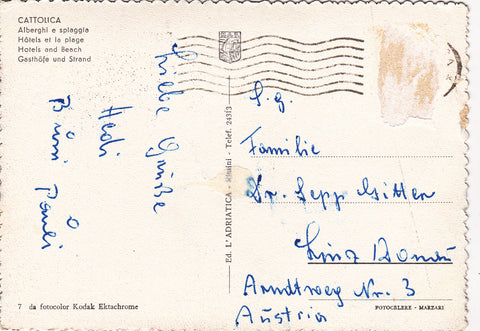 CATTOLICA
Alberghi e spiaggia
Hôtels et la plage
Hotels and Beach
Gasthöfe und Strand
Hedi
S.g.
Familie
Dr. Sepp Gitter
Linz Donau
Arndtweg Nr. 3
Austria
Ed. L'ADRIATICA - Rimini - Telef. 24313
7 da fotocolor Kodak Ektachrome
FOTOCELERE - MARZARI